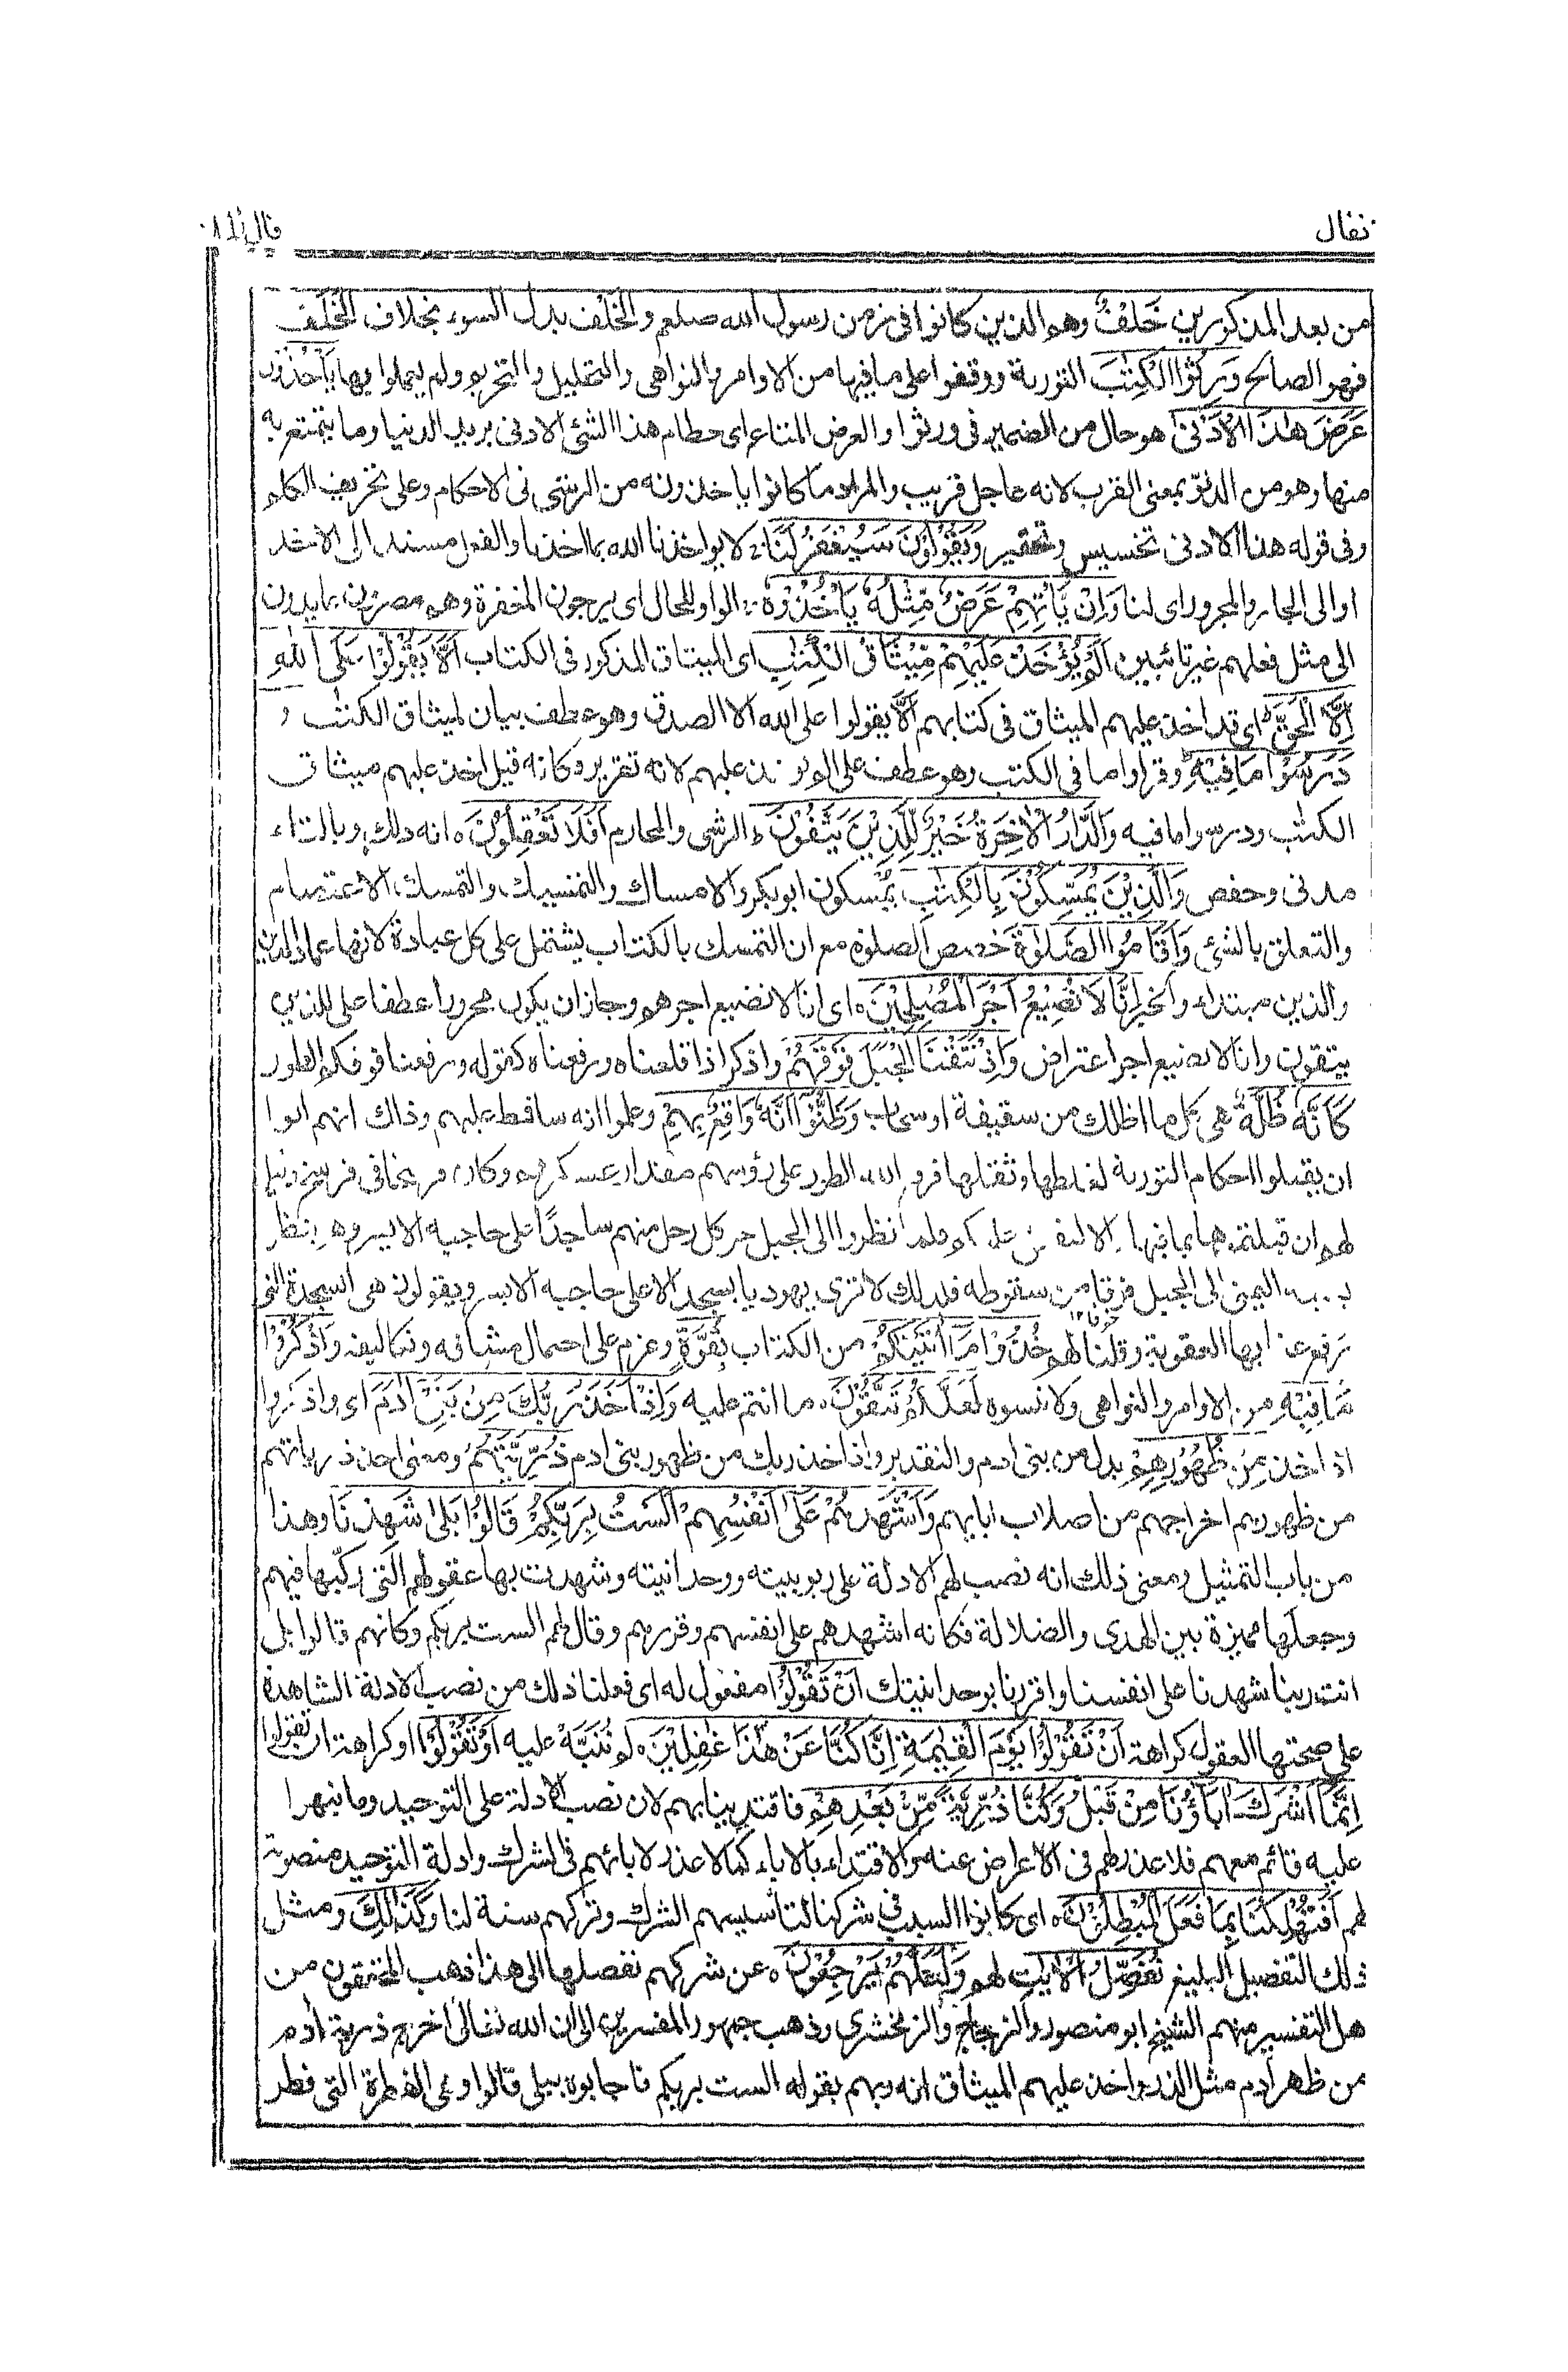 نفال
قال الملأ
من بعد المذكورين خَلْفٌ وهم الذين كانوا فى زمن رسول الله صلعم والخَلْف بدل السوء بخلاف الخَلَف
فهو الصالح وَرِثُوا الْكِتٰبَ التورىة ووقفوا على ما فيها من الاوامر والنواهى والتحليل والتحريم ولم يعملوا بها يَأْخُذُوْنَ
عَرَضَ هٰذَا الْاَدْنٰى هو حال من الضمير فى ورثوا والعرض المتاع اى حطام هذا الشئ الادنى يريد الدنيا وما يتمتع به
منها وهو من الدنوّ بمعنى القرب لانه عاجل قريب والمراد ما كانوا ياخذونه من الرشى فى الاحكام وعلى تحريف الكلم
وفى قوله هذا الادنى تخسيس وتحقير وَيَقُوْلُوْنَ سَيُغْفَرُ لَنَا لا يواخذنا الله بما اخذنا والفعل مسند الى الاخذ
او الى الجار والمجرور اى لنا وَاِنْ يَّاْتِهِمْ عَرَضٌ مِّثْلُهٗ يَاْخُذُوْهُ الواو للحال اى يرجون المغفرة وهم مصرّون عايدون
الى مثل فعلهم غير تائبين اَلَمْ يُؤْخَذْ عَلَيْهِمْ مِّيْثَاقُ الْكِتٰبِ اى الميثاق المذكور فى الكتاب اَلَّا يَقُوْلُوْا عَلَى اللّٰهِ
اِلَّا الْحَقَّ اى قد اخذ عليهم الميثاق فى كتابهم اَلّا يقولوا على الله الا الصدق وهو عطف بيان لميثاق الكتٰب و
دَرَسُوْا مَا فِيْهِ وقراوا ما فى الكتٰب وهو عطف على الم يوخذ عليهم لانه تقرير وكانه قيل اخذ عليهم ميثاق
الكتٰب ودرسوا ما فيه وَالدَّارُ الْاٰخِرَةُ خَيْرٌ لِّلَّذِيْنَ يَتَّقُوْنَ ط الرشى والمحارم اَفَلَا تَعْقِلُوْنَ ه انه ذلك وبالتاء
مدنى وحفص وَالَّذِيْنَ يُمَسِّكُوْنَ بِالْكِتٰبِ يمسكون ابوبكر والامساك والتمسيك والتمسك الاعتصام
والتعلق بالشئ وَاَقَامُوا الصَّلٰوةَ خصص الصلوة مع ان التمسك بالكتاب يشتمل على كل عبادة لانها عماد الدين
والذين مبتداء والخبر اِنَّا لَا نُضِيْعُ اَجْرَ الْمُصْلِحِيْنَ ه اى انا لا نضيع اجرهم وجاز ان يكون مجرورا عطفا على للذين
يتقون وانا لا نضيع اجر اعتراض وَاِذْ نَتَقْنَا الْجَبَلَ فَوْقَهُمْ واذكر اذا قلعناه ورفعناه كقوله ورفعنا فوقكم الطور
كَاَنَّهٗ ظُلَّةٌ هى كل ما اظلك من سقيفة او سحاب وَظَنُّوْا اَنَّهٗ وَاقِعٌۢ بِهِمْ وعلموا انه ساقط عليهم وذلك انهم ابوا
ان يقبلوا احكام التورىة لغلظها وثقلها فرفع الله الطور على رؤسهم مقدار عسكرهم وكان فرسخا فى فرسخ وقيل
لهم ان قبلتموها بما فيها والا ليقعن عليكم فلما نظروا الى الجبل خر كل رجل منهم ساجدًا على حاجبه الايسر وهو ينظر
بعينه اليمنى الى الجبل فرقا من سقوطه فلذلك لا ترى يهوديا يسجد الا على حاجبه الايسر ويقولون هى السجدة التى
خوفا ١٢
رفع عنا بها العقوبة وقلنا لهم خُذُوْا مَا اٰتَيْنٰكُمْ من الكتاب بِقُوَّةٍ وعزم على احتمال مشاقه وتكاليفه وَاذْكُرُوْا
مَا فِيْهِ من الاوامر والنواهى ولا تنسوه لَعَلَّكُمْ تَتَّقُوْنَ ه ما انتم عليه وَاِذْ اَخَذَ رَبُّكَ مِنْۢ بَنِيْ اٰدَمَ اى واذكروا
اذ اخذ مِنْ ظُهُوْرِهِمْ بدل من بنى ادم والتقدير واذ اخذ ربك من ظهور بنى ادم ذُرِّيَّتَهُمْ ومعنى اخذ ذرياتهم
من ظهورهم اخراجهم من اصلاب ابايهم وَاَشْهَدَهُمْ عَلٰى اَنْفُسِهِمْ اَلَسْتُ بِرَبِّكُمْ قَالُوْا بَلٰى شَهِدْنَا وهذا
من باب التمثيل ومعنى ذلك انه نصب لهم الادلة على ربوبيته ووحدانيته وشهدت بها عقولهم التى ركّبها فيهم
وجعلها مميزة بين الهدى والضلالة فكانه اشهدهم على انفسهم وقررهم وقال لهم الست بربكم وكانهم قالوا بلى
انت ربنا شهدنا على انفسنا واقررنا بوحدانيتك اَنْ تَقُوْلُوْا مفعول له اى فعلنا ذلك من نصب الادلة الشاهدة
على صحتها العقول كراهة اَنْ تَقُوْلُوْا يَوْمَ الْقِيٰمَةِ اِنَّا كُنَّا عَنْ هٰذَا غٰفِلِيْنَ ه لم نُنَبَّهْ عليه اَوْ تَقُوْلُوْا او كراهة ان تقولوا
اِنَّمَا اَشْرَكَ اٰبَاؤُنَا مِنْ قَبْلُ وَكُنَّا ذُرِّيَّةً مِّنْۢ بَعْدِهِمْ فاقتدينا بهم لان نصب الادلة على التوحيد وما نبهوا
عليه قائم معهم فلا عذر لهم فى الاعراض عنه والاقتداء بالاباء كما لا عذر لابائهم فى الشرك وادلة التوحيد منصوبة
لهم اَفَتُهْلِكُنَا بِمَا فَعَلَ الْمُبْطِلُوْنَ ه اى كانوا السبب فى شركنا لتأسيسهم الشرك وتركهم سنة لنا وَكَذٰلِكَ ومثل
ذلك التفصيل البليغ نُفَصِّلُ الْاٰيٰتِ لهم وَلَعَلَّهُمْ يَرْجِعُوْنَ ه عن شركهم نفصلها الى هذا ذهب المحققون من
هل التفسير منهم الشيخ ابو منصور والزجاج والزمخشرى وذهب جمهور المفسرين الى ان الله تعالى اخرج ذرية ادم
من ظهر ادم مثل الذر واخذ عليهم الميثاق انه ربهم بقوله الست بربكم فاجابوه ببلى قالوا وهى الفطرة التى فطر